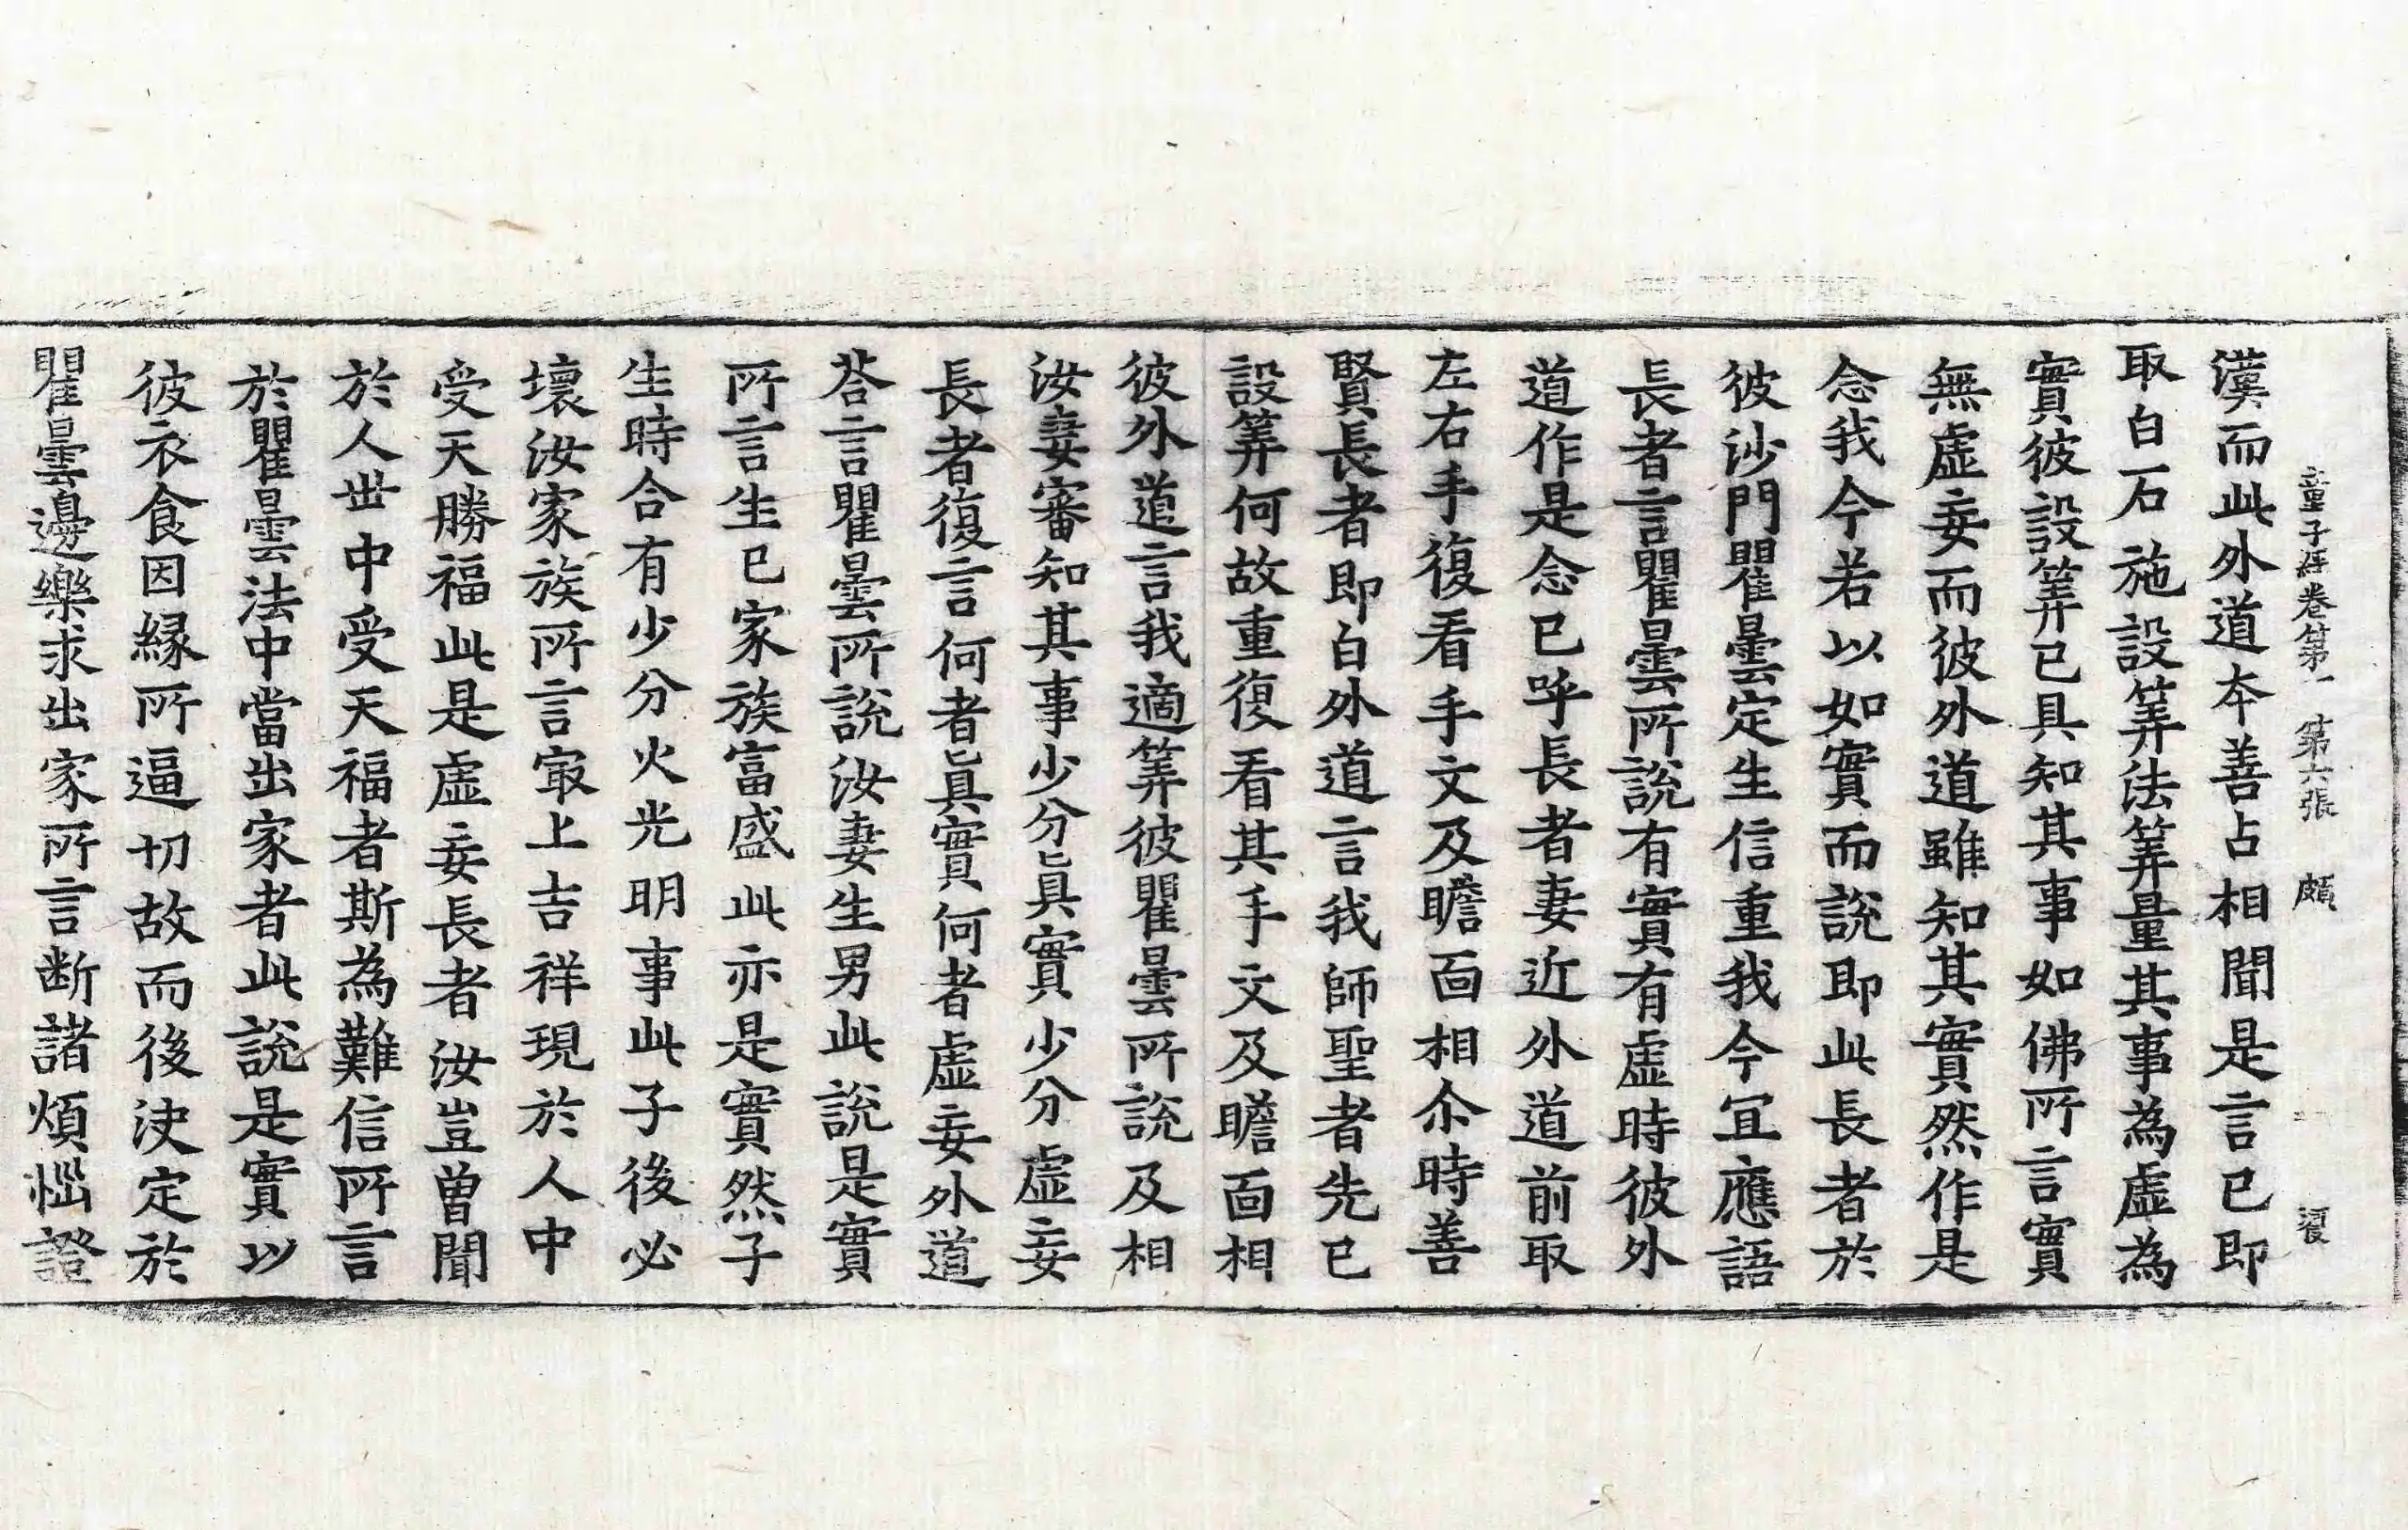 童子經卷第一 第六張 頗
漢而此外道夲善占相聞是言已即
取白石施設筭法筭量其事為虛為
實彼設筭已具知其事如佛所言實
無虛妄而彼外道雖知其實然作是
念我今若以如實而說即此長者於
彼沙門瞿曇定生信重我今宜應語
長者言瞿曇所說有實有虛時彼外
道作是念已呼長者妻近外道前取
左右手復看手文及瞻面相尒時善
賢長者即白外道言我師聖者先已
設筭何故重復看其手文及瞻面相
彼外道言我適筭彼瞿曇所說及相
汝妻審知其事少分真實少分虛妄
長者復言何者真實何者虛妄外道
荅言瞿曇所說汝妻生男此說是實
所言生已家族富盛此亦是實然子
生時合有少分火光明事此子後必
壞汝家族所言冣上吉祥現於人中
受天勝福此是虛妄長者汝豈曽聞
於人世中受天福者斯為難信所言
於瞿曇法中當出家者此說是實以
彼衣食因縁所逼切故而後決定於
瞿曇邊樂求出家所言断諸煩惱證